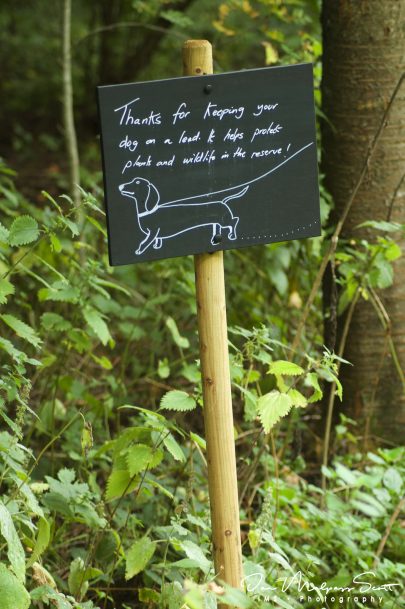 Thanks for Keeping your
dog on a lead. It helps protect
plants and wildlife in the reserve!
Photography